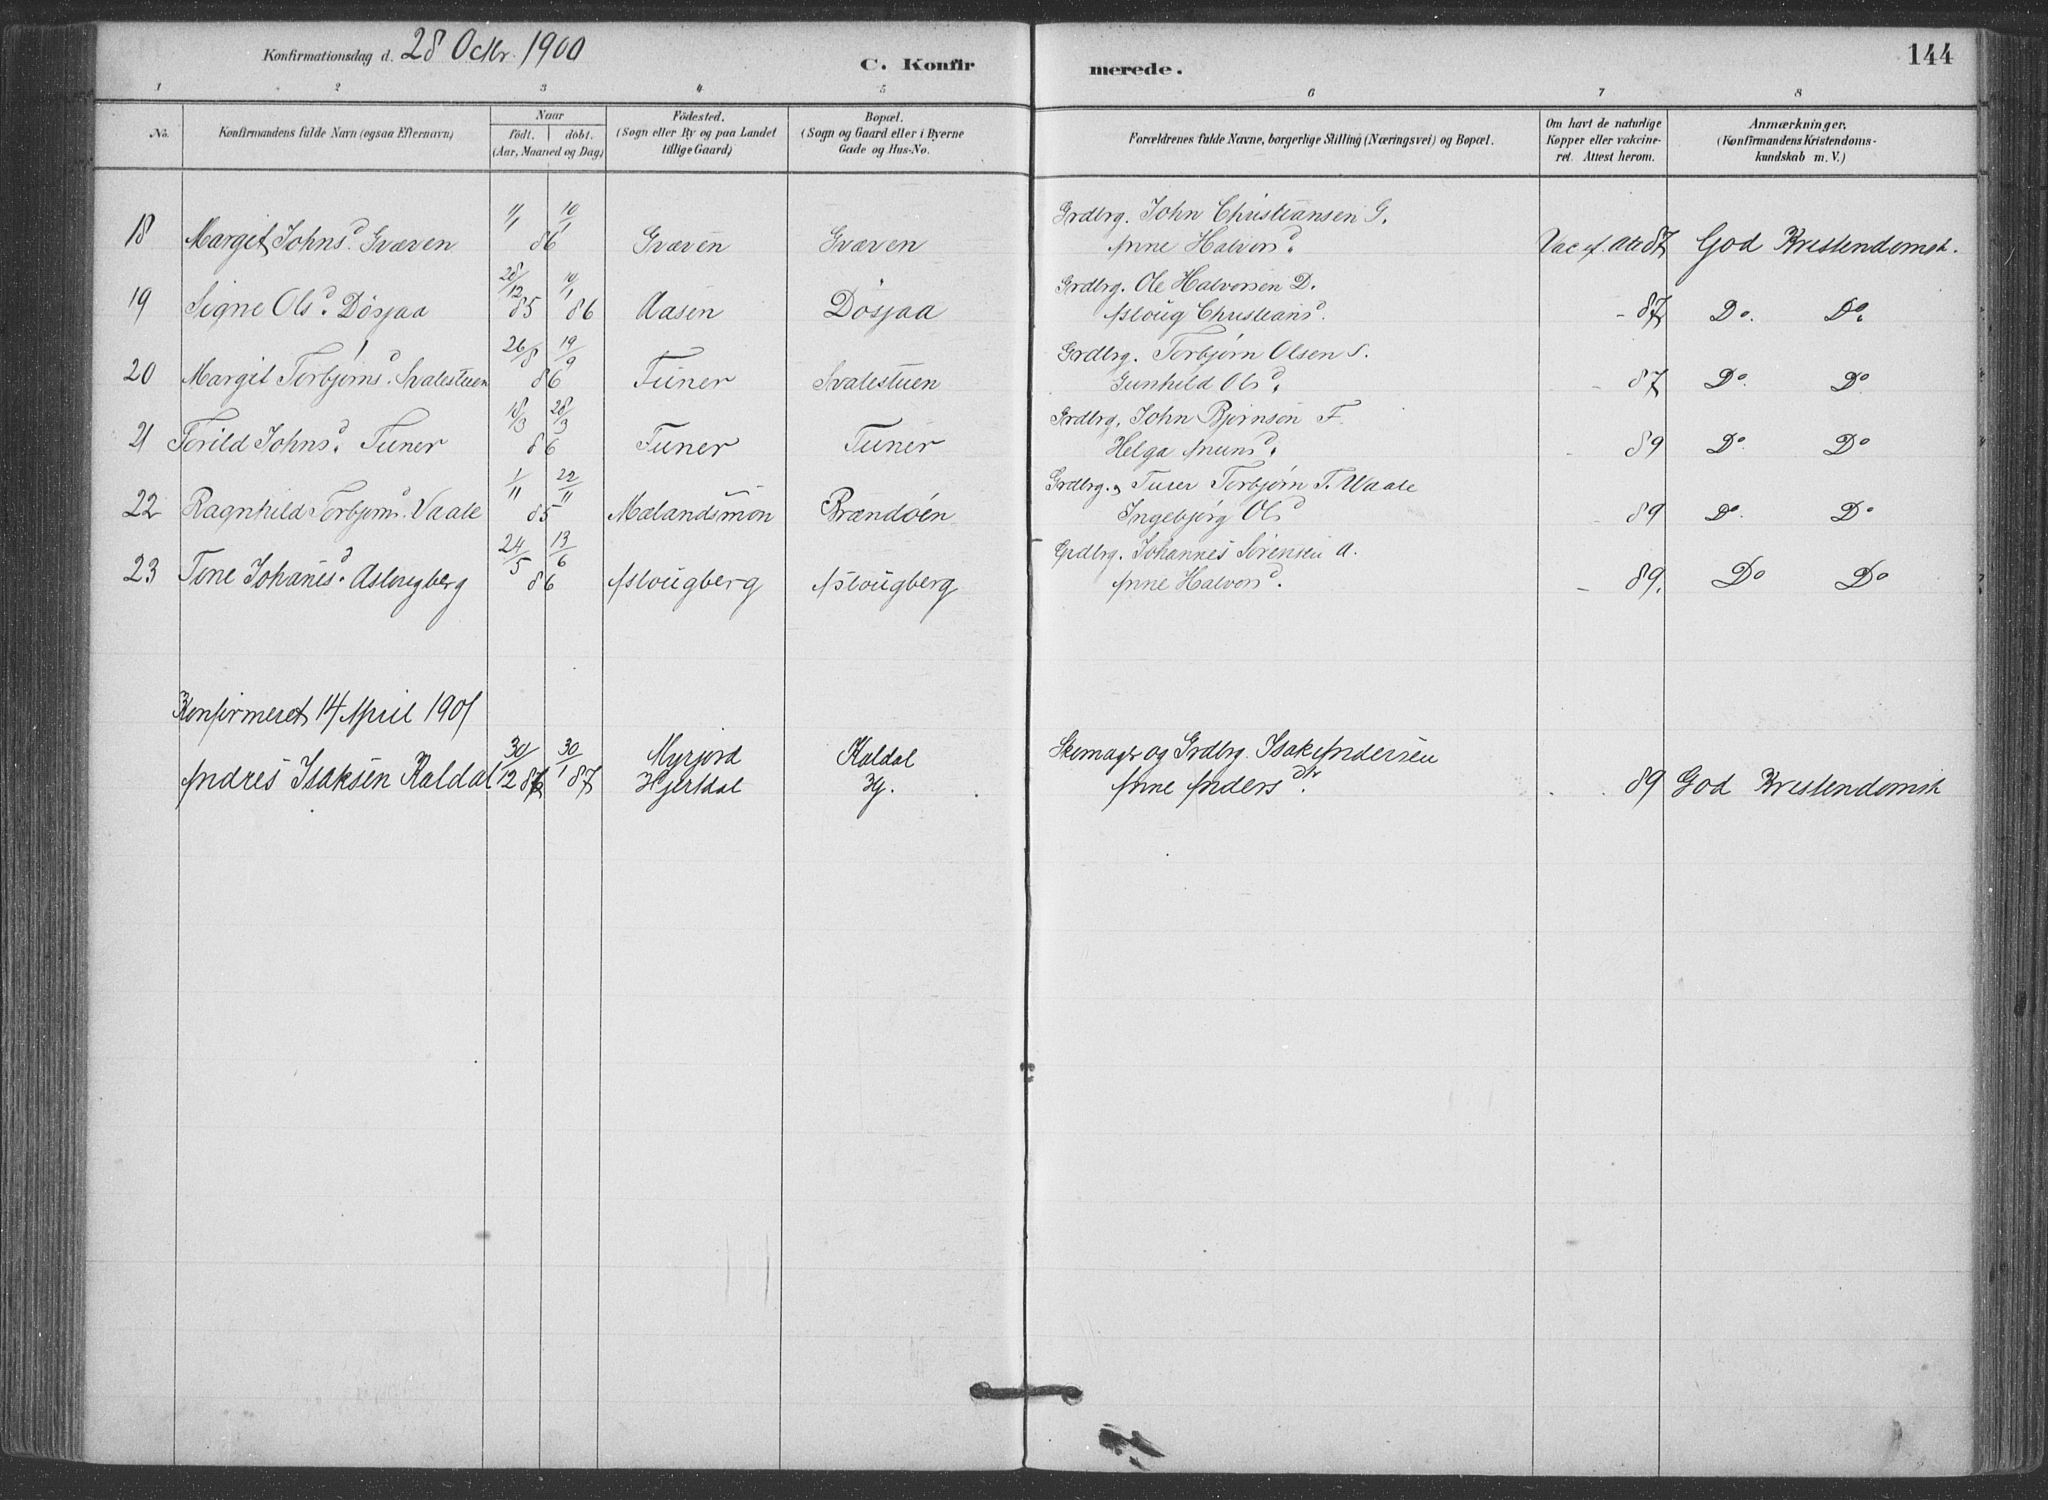 Konfirmationsdag d. 28 Octbr. 1900
C. Konfirmerede.
144
1 2 3 4 5 6 7 8
No.
Konfirmandens fulde Navn (ogsaa Efternavn)
Naar
födt. döbt.
(Aar, Maaned og Dag)
Födested.
(Sogn eller By og paa Landet
tillige Gaard)
Bopæl.
(Sogn og Gaard eller i Byerne
Gade og Hus-No.
Forældrenes fulde Navne, borgerlige Stilling (Næringsvei) og Bopæl.
Om havt de naturlige
Kopper eller vakcine-
ret. Attest herom.
Anmærkninger,
(Konfirmandens Kristendoms-
kundskab m. V.)
11/1 10/1 Grdbrg. John Christiansen G.
18 Margit Johnsd. Gvæven 86 Gvæven Gvæven Anne Halvorsd. Vac ef. Att 87 God Kristendomsk.
28/12 10/1 Grdbrg. Ole Halvorsen D.
19 Signe Olsd. Dösjaa 85 86 Aasen Dösjaa Asloug Christiansd. - 87 Do. Do.
26/8 19/9 Grdbrg. Torbjørn Olsen S.
20 Margit Torbjørnsd. Svalestuen 86 Funer Svalestuen Gunhild Olsd. - 87 Do. Do
18/3 28/3 Grdbrg. John Bjørnsøn F.
21 Torild Johnsd. Funer 86 Funer Funer Helga Amunsd. - 89 Do Do
1/11 22/11 Grdbrg. Torbjørn T. Waale
22 Ragnhild Torbjørnsd. Vaale 85 Mælandsmon Brændöen Ingebjørg Olsd - 89 Do. Do
24/5 13/6 Grdbrg. Johannes Sørensen A.
23 Tone Johanesd. Aslougberg 86 Aslougberg Aslougberg Anne Halvorsd. - 89. Do Do
Konfirmeret 14 April 1901
30/12 30/1 Myrjord Kaldal Skomager og Grdbrg. Isak Andersen
Andres Isaksen Kaldal 86 87 Hjertdal Hj. Anne Andersdtr. - - 89 God Kristendomsk